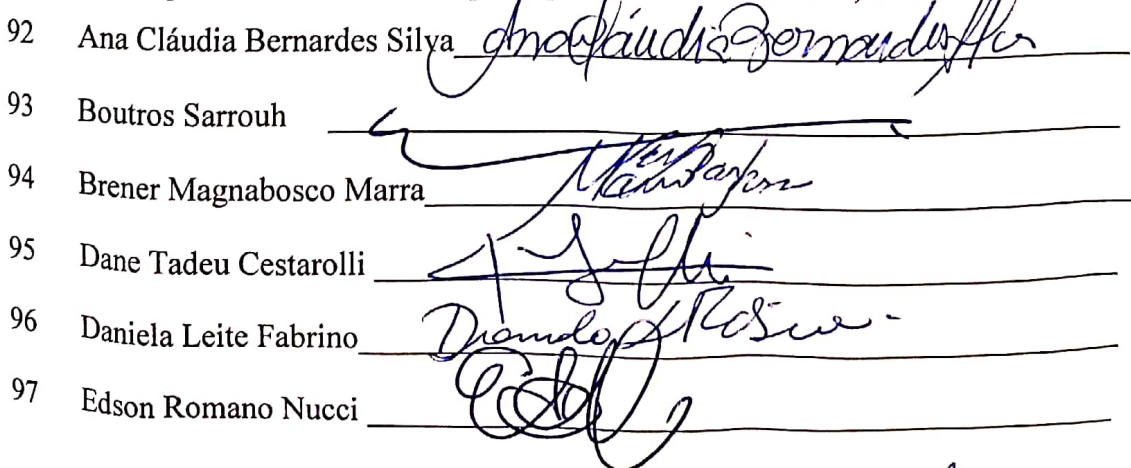 92 Ana Cláudia Bernardes Silva Ana Cláudia Bernardes
93 Boutros Sarrouh
94 Brener Magnabosco Marra
95 Dane Tadeu Cestarolli
96 Daniela Leite Fabrino
97 Edson Romano Nucci